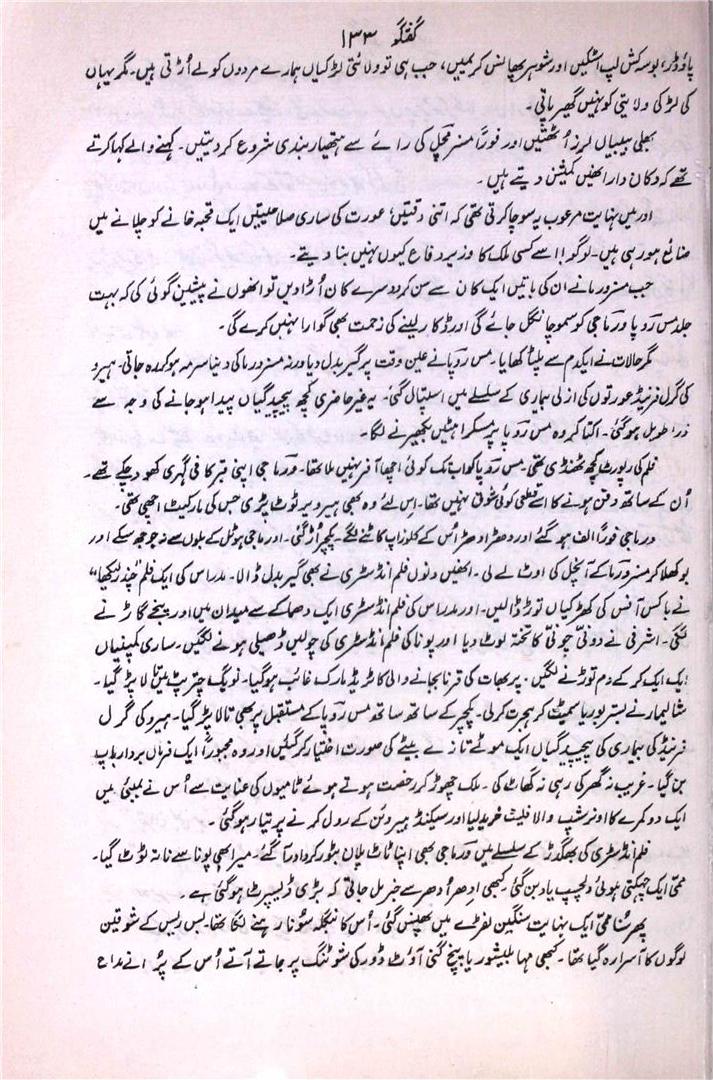 گفتگو ۱۳۳
پاؤڈر، بوسہ کش لپ اسٹکیں اور شوہر پھانس کریمیں، جب ہی تو ولائتی لڑکیاں ہمارے مردوں کو لے اُڑتی ہیں۔ مگر یہاں
کی لڑکی ولایتی کو نہیں گھیر پاتی۔
بھلی بیبیاں لرز اُٹھتیں اور فوراً مسز مچل کی رائے سے ہتھیار بندی شروع کر دیتیں۔ کہنے والے کہا کرتے
تھے کہ دکان دار انھیں کمیشن دیتے ہیں۔
اور میں نہایت مرعوب یہ سوچا کرتی تھی کہ اتنی دقتیں، عورت کی ساری صلاحیتیں ایک قحبہ خانے کو چلانے میں
ضائع ہو رہی ہیں۔ لوگو! اسے کسی ملک کا وزیر دفاع کیوں نہیں بنا دیتے۔
جب مسز ورما نے ان کی باتیں ایک کان سے سن کر دوسرے کان اُڑا دیں تو انھوں نے پیشین گوئی کی کہ بہت
جلد مس روپا ورما جی کو سموچا نگل جائے گی اور ڈکار لینے کی زحمت بھی گوارا نہیں کرے گی۔
مگر حالات نے ایکدم سے پلٹا کھایا۔ مس روپا نے عین وقت پر گیر بدل دیا ورنہ مسز ورما کی دنیا سرمہ ہو کر رہ جاتی۔ ہیرو
کی گرل فرینڈ عورتوں کی ازلی بیماری کے سلسلے میں اسپتال گئی۔ یہ غیر حاضری کچھ پیچیدگیاں پیدا ہو جانے کی وجہ سے
ذرا طویل ہو گئی۔ اکتا کر وہ مس روپا پہ مسکراہٹیں بکھیرنے لگا۔
فلم کی رپورٹ کچھ ٹھنڈی تھی۔ مس روپا کو اب تک کوئی اچھا آفر نہیں ملا تھا۔ ورما جی اپنی قبر کافی گہری کھود چکے تھے۔
اُن کے ساتھ دفن ہونے کا اسے قطعی کوئی شوق نہیں تھا۔ اس لئے وہ بھی ہیرو پر ٹوٹ پڑی جس کی مارکیٹ اچھی تھی۔
ورما جی فوراً الف ہو گئے اور دھڑا دھڑ اُس کے کلوزاپ کاٹنے لگے۔ پکچر اُڑ گئی۔ اور ما جی ہوٹل کے بلوں سے نہ جوجھ سکے اور
بوکھلا کر مسز ورما کے آنچل کی اوٹ لے لی۔ انھیں دنوں فلم انڈسٹری نے بھی گیر بدل ڈالا۔ مدراس کی ایک فلم "چندر لیکھا"
نے باکس آفس کی کھڑکیاں توڑ ڈالیں۔ اور مدراس کی فلم انڈسٹری ایک دھماکے سے میدان میں اور پنجے گاڑنے
لگی۔ اشرفی نے دونّی چونّی کا تختہ لوٹ دیا اور پونا کی فلم انڈسٹری کی چولیں ڈھیلی ہونے لگیں۔ ساری کمپنیاں
ایک ایک کر کے دم توڑنے لگیں۔ پربھات کی قرنا بجانے والی کا ٹریڈ مارک غائب ہو گیا۔ نویگ چتر پٹ میں تالا پڑ گیا۔
شالیمار نے بستر بوریا سمیٹ کر ہجرت کر لی۔ پکچر کے ساتھ ساتھ مس روپا کے مستقبل پر بھی تالا پڑ گیا۔ ہیرو کی گرل
فرینڈ کی بیماری کی پیچیدگیاں ایک موٹے تازے بیٹے کی صورت اختیار کر گئیں اور وہ مجبوراً ایک فرماں بردار باپ
بن گیا۔ غریب نہ گھر کی رہی نہ گھاٹ کی۔ ملک چھوڑ کر رخصت ہوتے ہوئے ٹامیوں کی عنایت سے اُس نے بمبئی میں
ایک دو کمرے کا اونر شپ والا فلیٹ خرید لیا اور سیکنڈ ہیروئن کے رول کرنے پر تیار ہو گئی۔
فلم انڈسٹری کی بھگدڑ کے سلسلے میں ورما جی بھی اپنا ٹاٹ پلان بٹور کر دادر آ گئے۔ میرا بھی پونا سے ناتہ ٹوٹ گیا۔
ممّی ایک چہکتی ہوئی دلچسپ یاد بن گئی۔ کبھی اِدھر اُدھر سے خبر مل جاتی کہ بڑی ڈیسپریٹ ہو گئی ہے۔
پھر سُنا ممّی ایک نہایت سنگین لفڑے میں پھنس گئی۔ اُس کا بنگلہ سُونا رہنے لگا تھا۔ بس ریس کے شوقین
لوگوں کا آسرا رہ گیا تھا۔ کبھی مہابلیشور یا پنچ گنی آوٹ ڈور کی شوٹنگ پر جاتے آتے اُس کے پرانے مداح